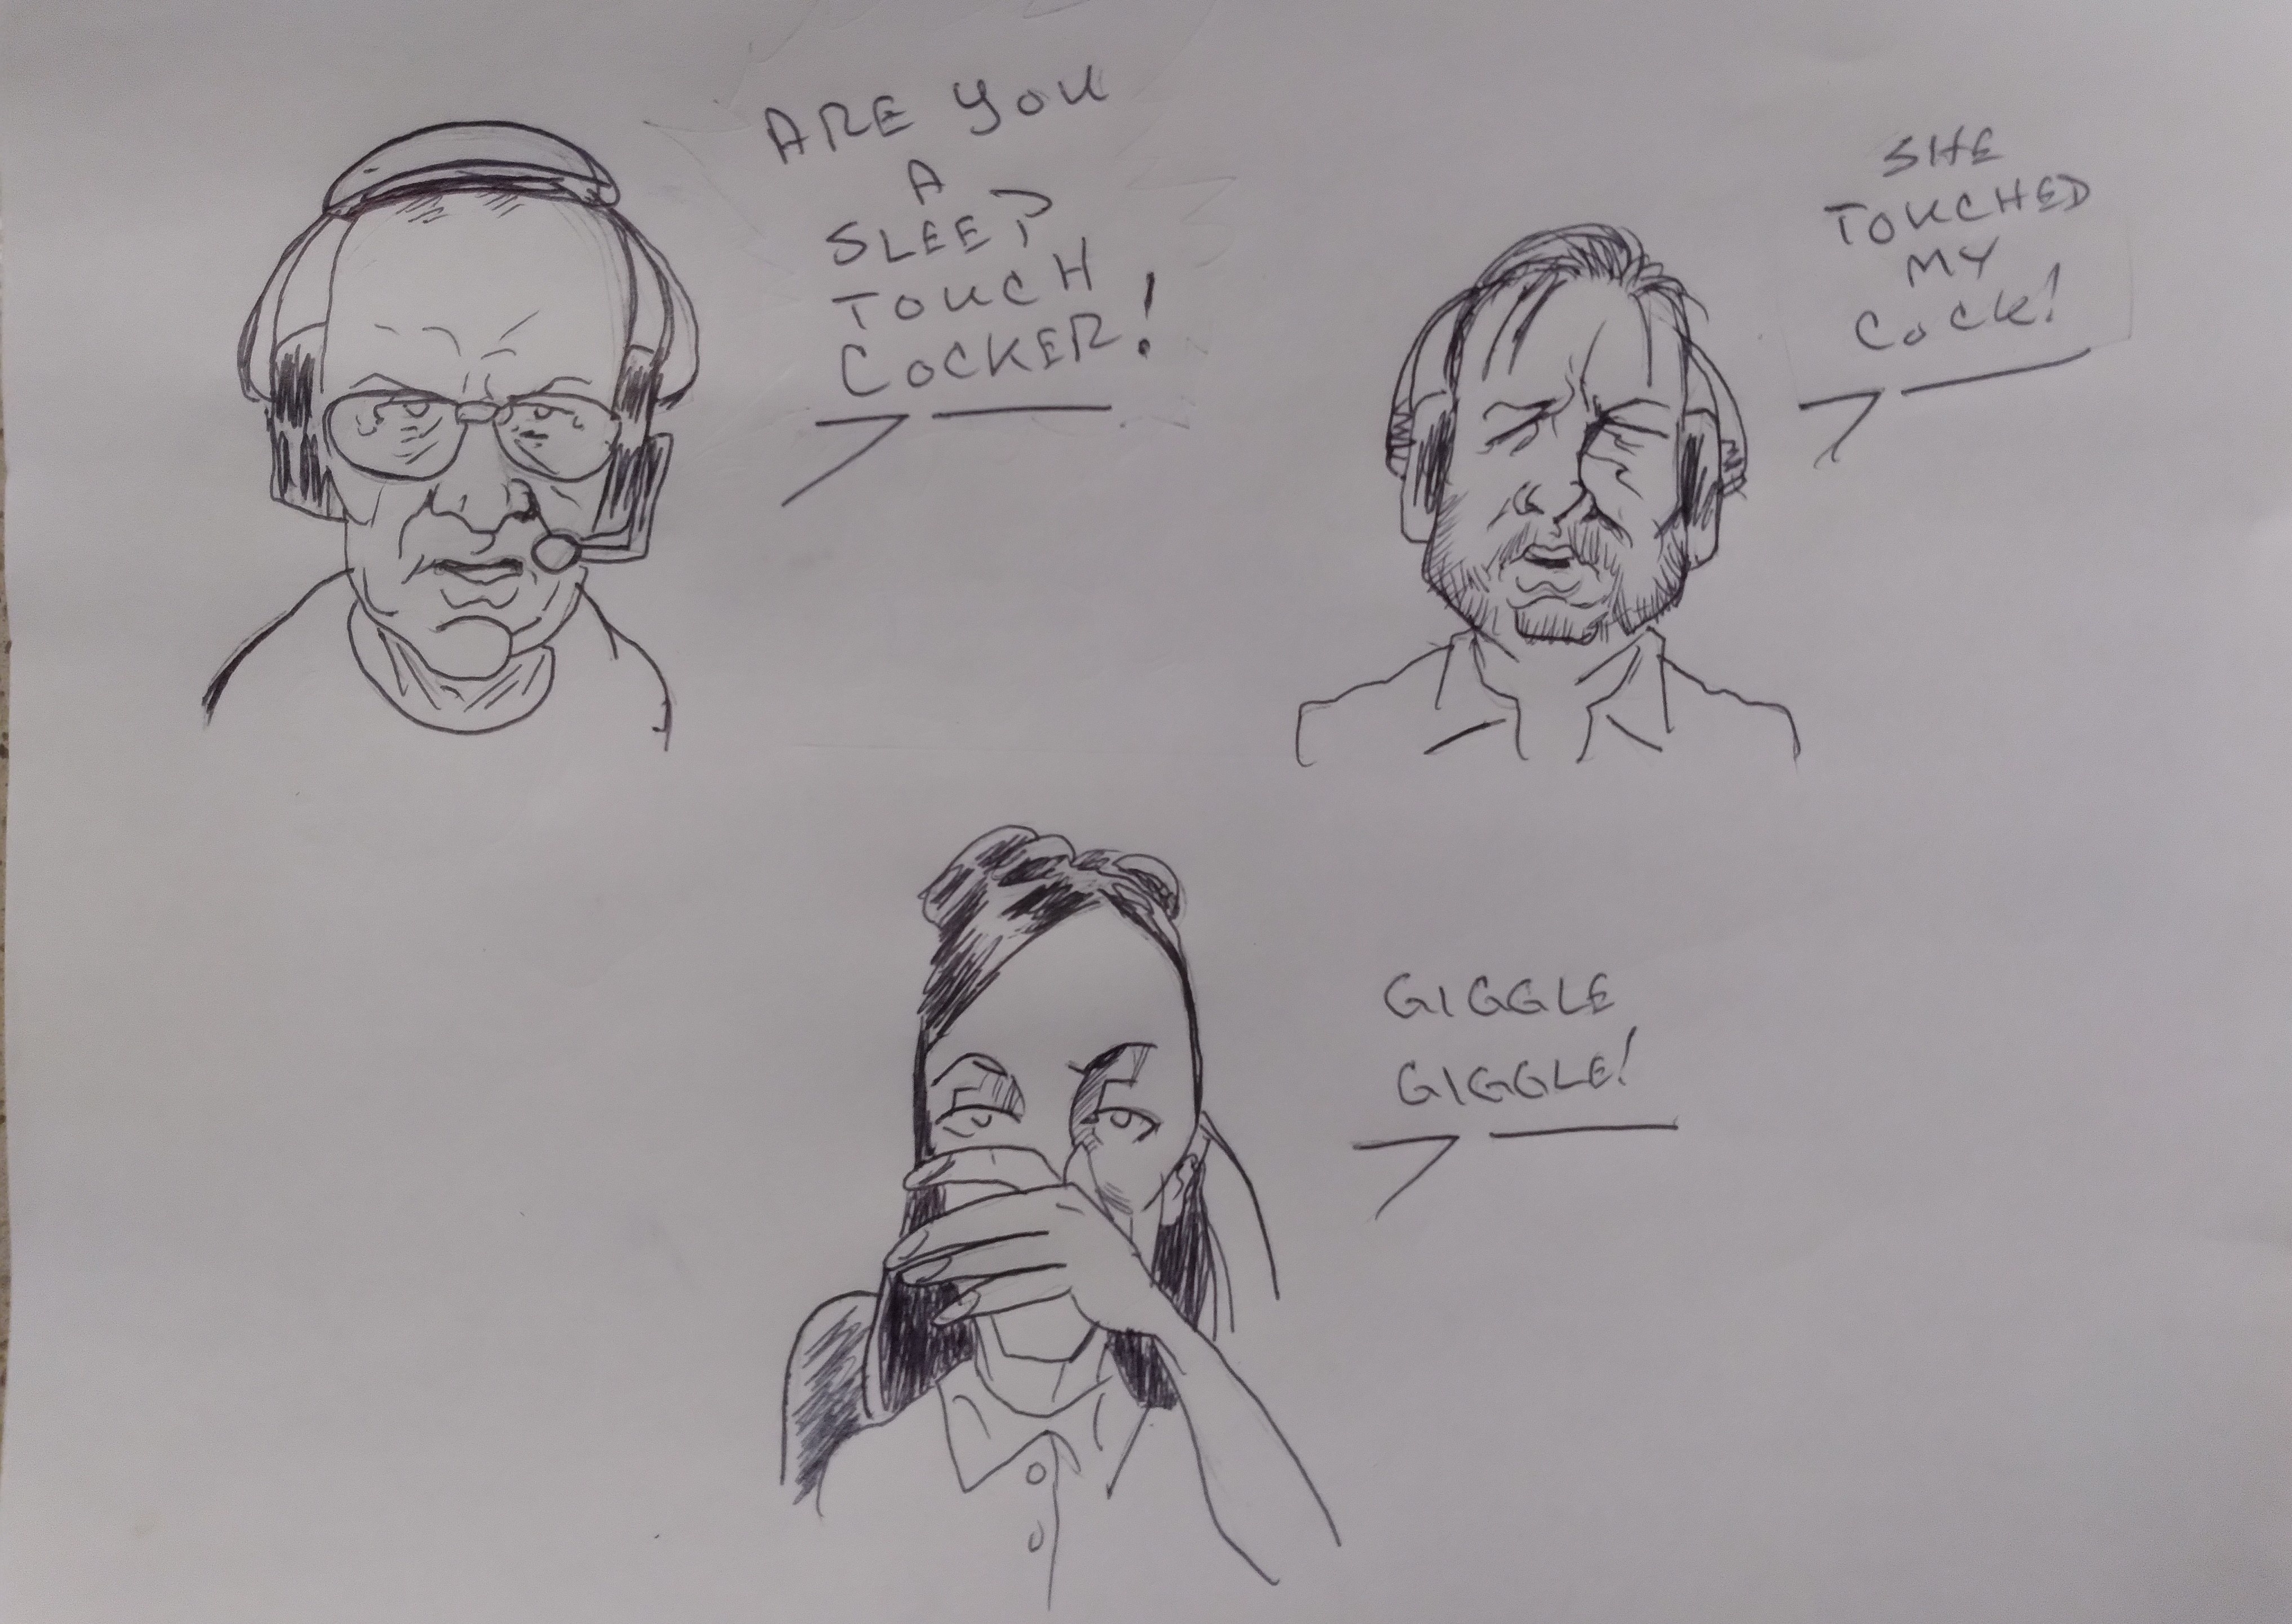 ARE YOU
A
SLEEP
TOUCH
COCKER!
SHE
TOUCHED
MY
COCK!
GIGGLE
GIGGLE!